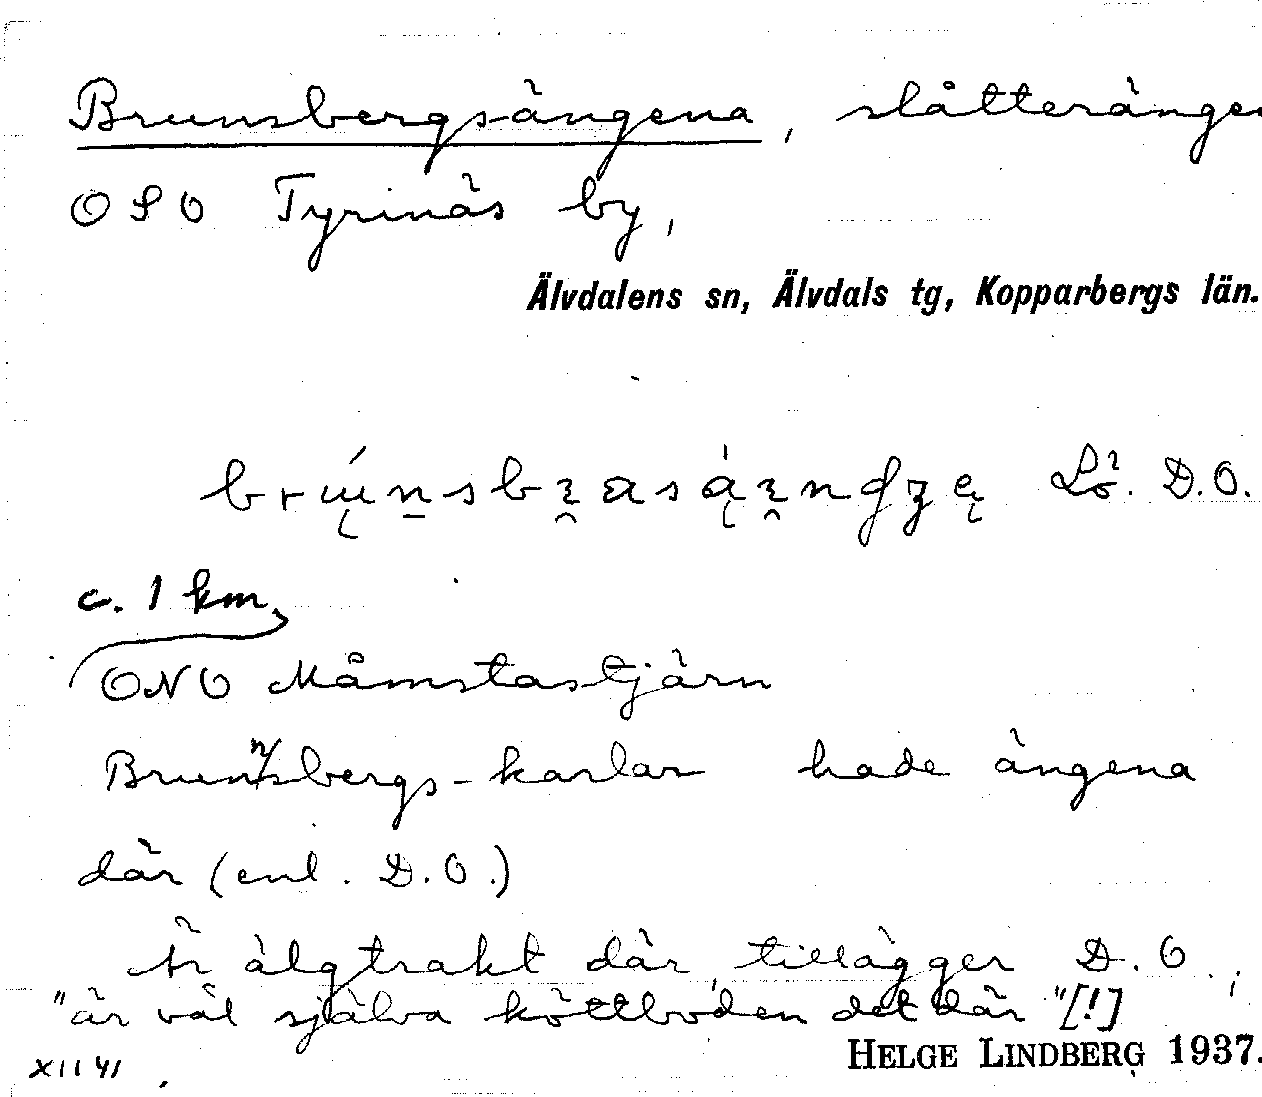 Brunsbergsängena, slåtterängar
OSO Tyrinäs by,
Älvdalens sn, Älvdals tg, Kopparbergs län.
D.O.
c. 1 km
ONO Måmstastjärn
Brunnsbergs-karlar hade ängena
där (enl. D.O.)
Är älgtrakt där, tillägger D.O.;
"är väl själva köttboden det där" [!]
HELGE LINDBERG 1937.
XII 41